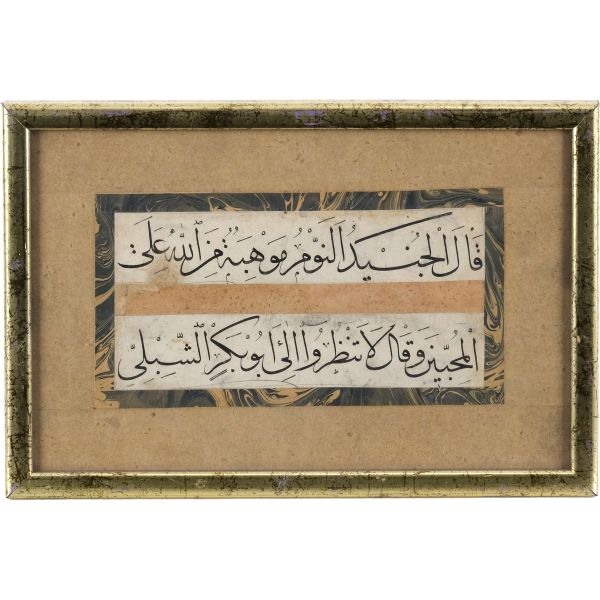 قال الجنيد النوم موهبة من الله على
المحبين وقال لا تنظروا الى ابو بكر الشبلي